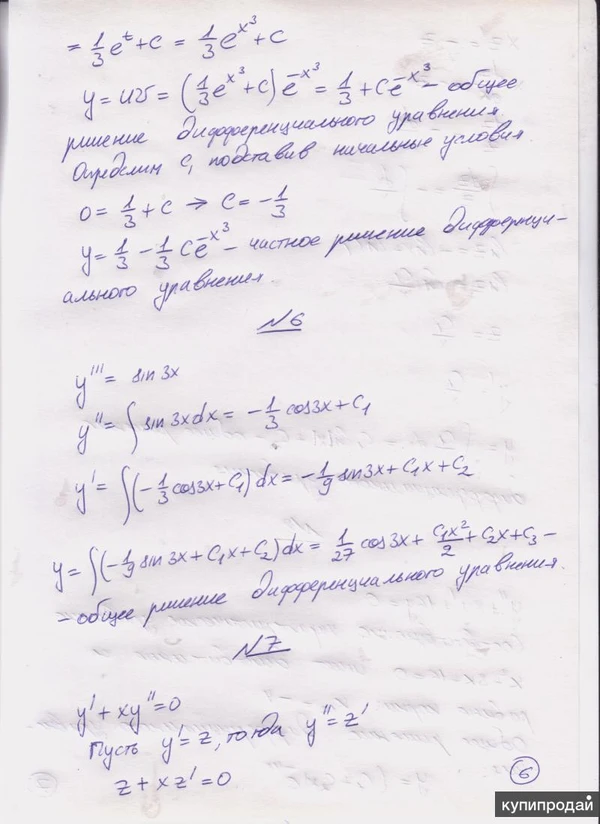 = 1/3 e^t + c = 1/3 e^{x^3} + c
y = uv = (1/3 e^{x^3} + c) e^{-x^3} = 1/3 + ce^{-x^3} – общее
решение дифференциального уравнения
Определим C, подставив начальные условия.
0 = 1/3 + c → c = -1/3
y = 1/3 - 1/3 ce^{-x^3} – частное решение дифференци-
ального уравнения
№6
y''' = sin 3x
y'' = ∫ sin 3x dx = -1/3 cos3x + C_1
y' = ∫(-1/3 cos3x + C_1) dx = -1/9 sin3x + C_1x + C_2
y = ∫(-1/9 sin 3x + C_1x + C_2) dx = 1/27 cos3x + C_1x^2/2 + C_2x + C_3 –
– общее решение дифференциального уравнения.
№7
y' + xy'' = 0
Пусть y' = z, тогда y'' = z'
z + xz' = 0
6
купипродай